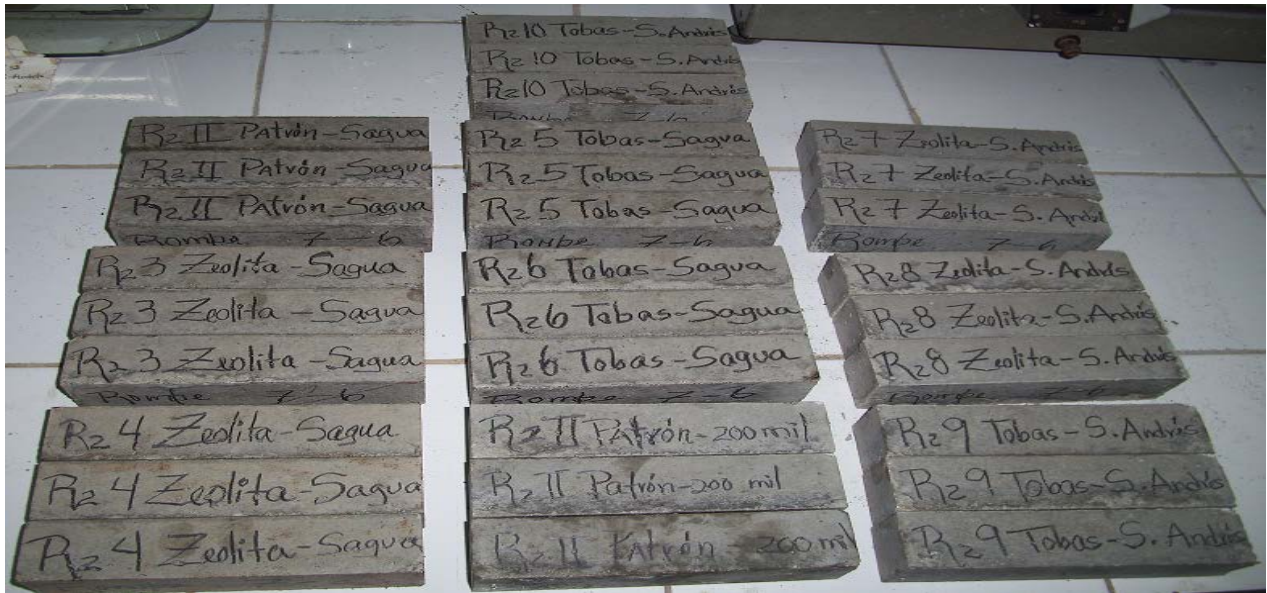 Rz 10 Tobas-S. Andrés
Rz 10 Tobas-S. Andrés
Rz 10 Tobas-S. Andrés
Rompe 7-6
Rz II Patrón-Sagua
Rz II Patrón-Sagua
Rz II Patrón-Sagua
Rompe 7-6
Rz 3 Zeolita-Sagua
Rz 3 Zeolita-Sagua
Rz 3 Zeolita-Sagua
Rompe 7-6
Rz 4 Zeolita-Sagua
Rz 4 Zeolita-Sagua
Rz 4 Zeolita-Sagua
Rz 5 Tobas-Sagua
Rz 5 Tobas-Sagua
Rz 5 Tobas-Sagua
Rompe 7-6
Rz 6 Tobas-Sagua
Rz 6 Tobas-Sagua
Rz 6 Tobas-Sagua
Rompe 7-6
Rz II Patrón-200 mil
Rz II Patrón-200 mil
Rz II Patrón-200 mil
Rz 7 Zeolita-S. Andrés
Rz 7 Zeolita-S. Andrés
Rz 7 Zeolita-S. Andrés
Rompe 7-6
Rz 8 Zeolita-S. Andrés
Rz 8 Zeolita-S. Andrés
Rz 8 Zeolita-S. Andrés
Rompe 7-6
Rz 9 Tobas-S. Andrés
Rz 9 Tobas-S. Andrés
Rz 9 Tobas-S. Andrés